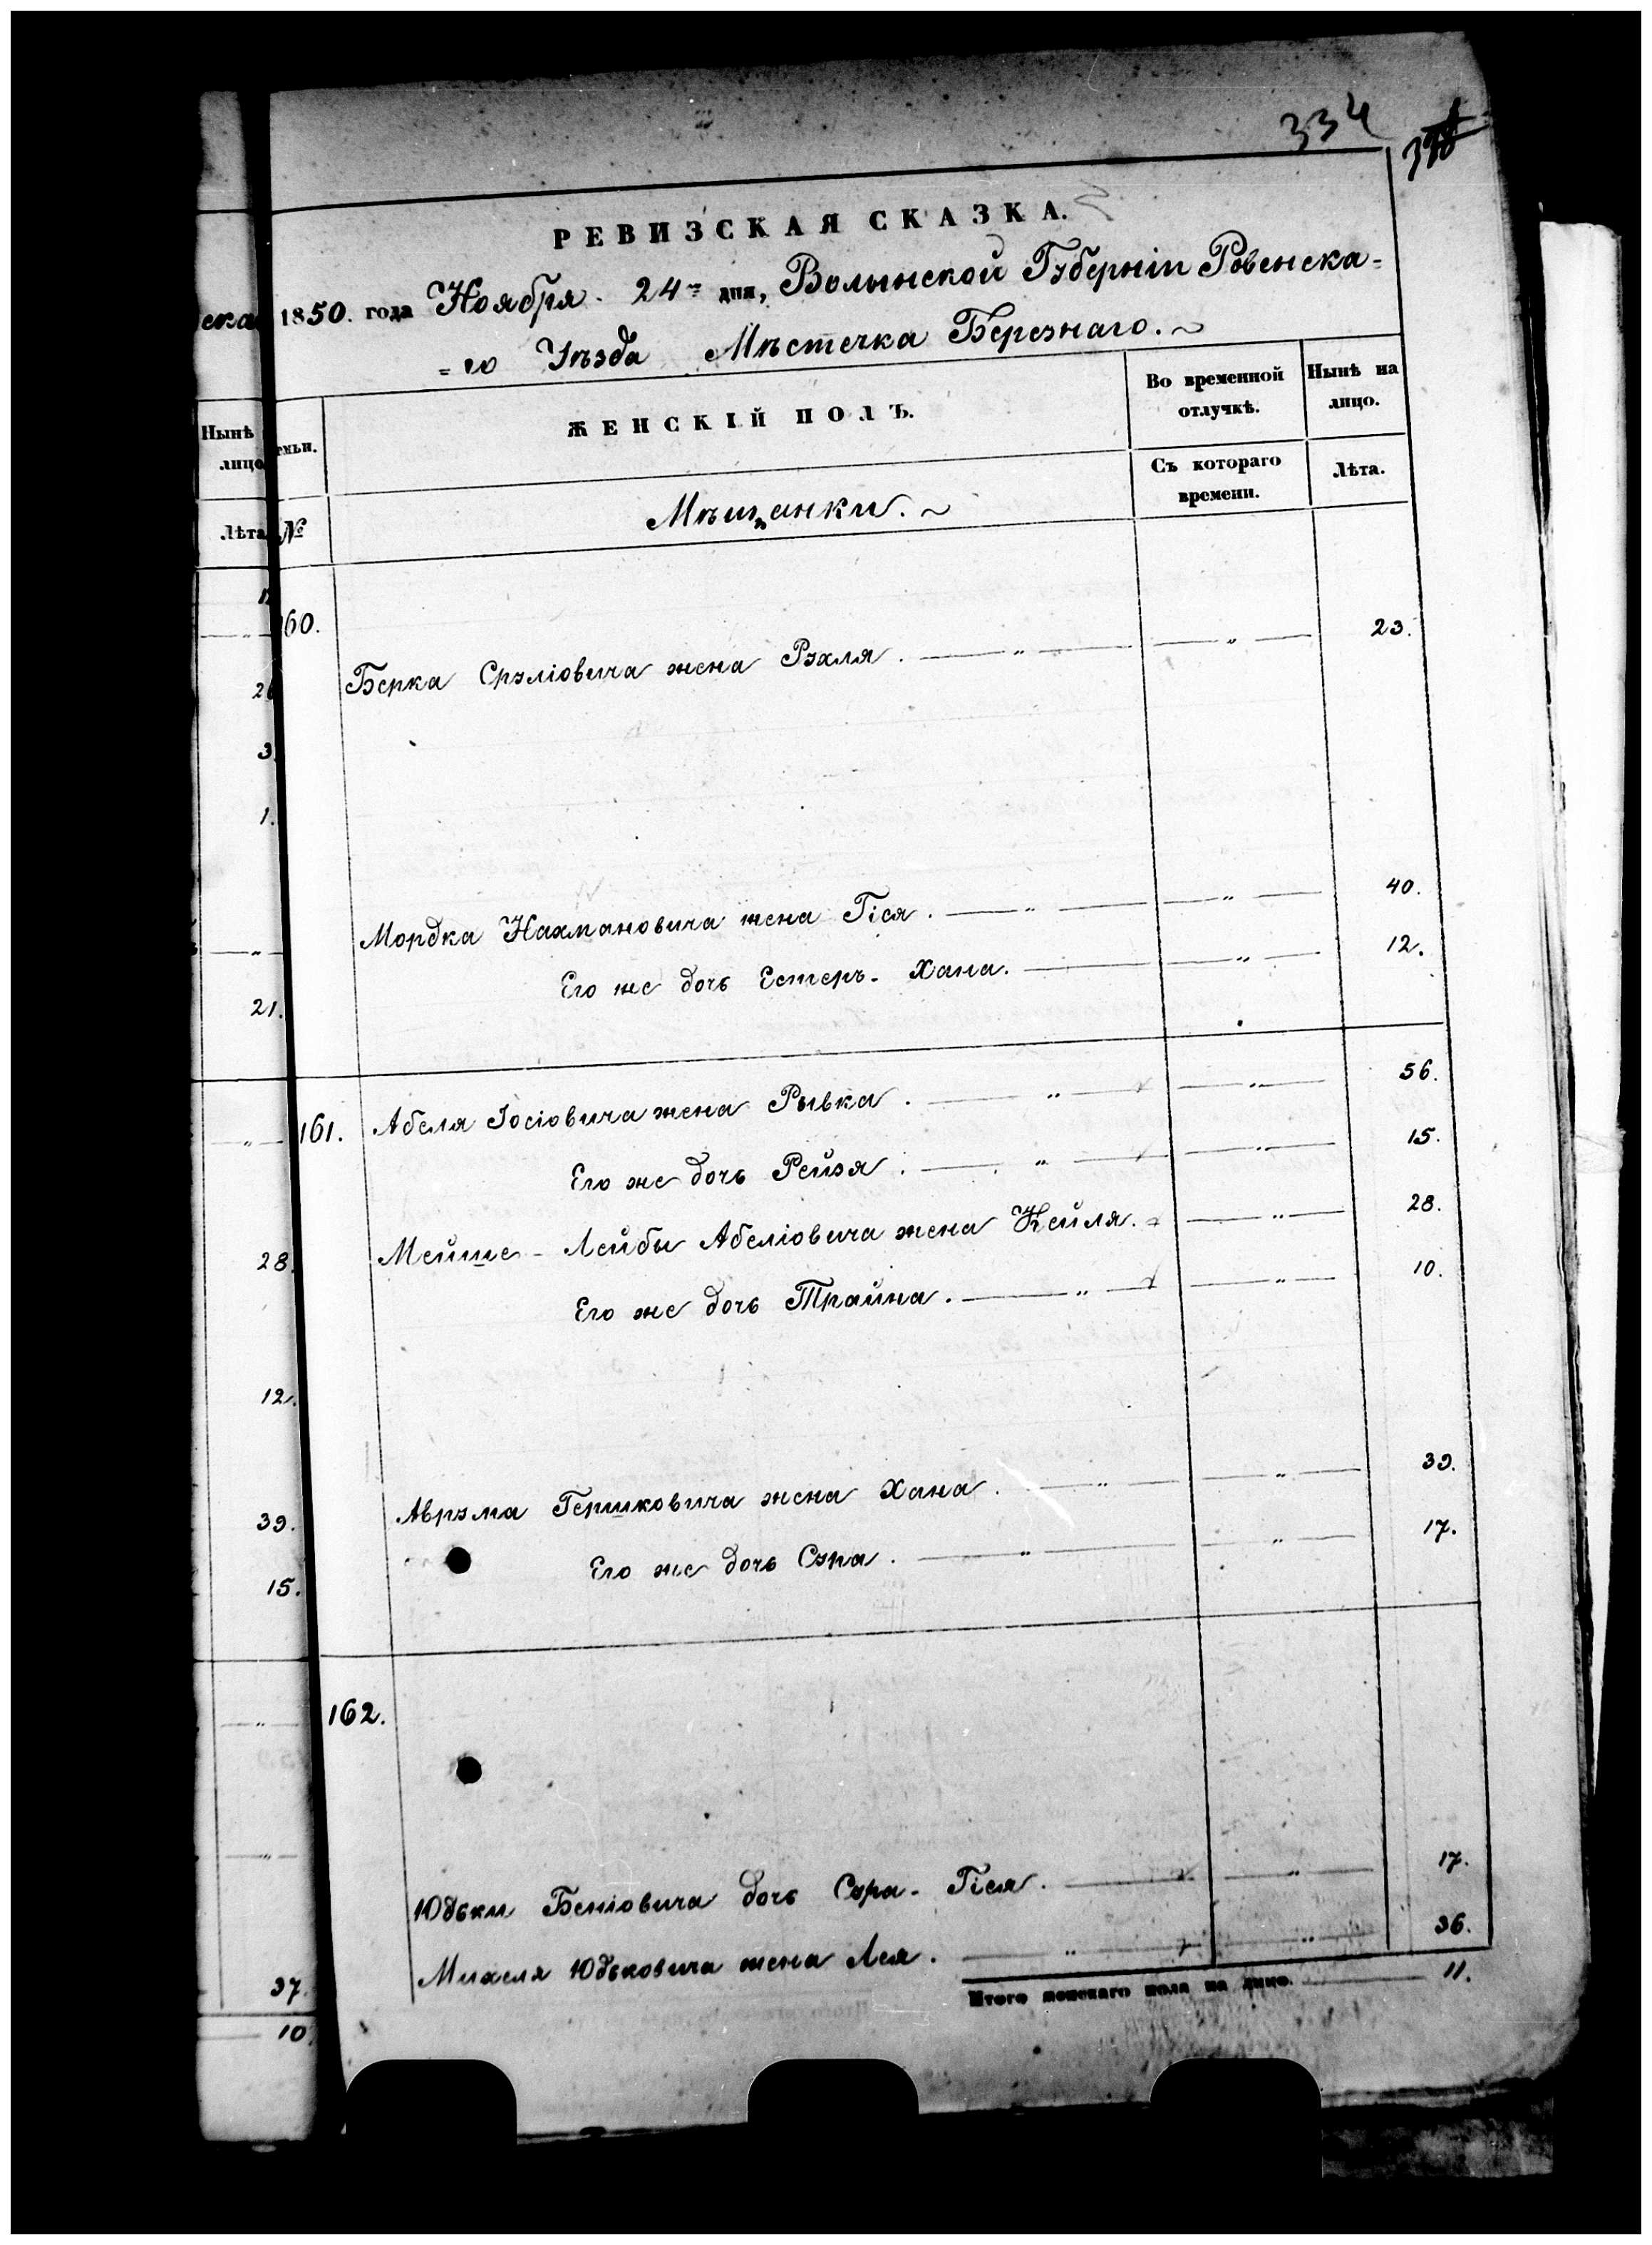 334
РЕВИЗСКАЯ СКАЗКА.
1850. года Ноября 24го дня, Волынской Губерніи Ровенска=
=го Уѣзда Мѣстечка Березнаго.
ска
Нынѣ
лицо
Лѣта
емьи.
№
ЖЕНСКІЙ ПОЛЪ.
Во временной отлучкѣ.
Нынѣ на лицо.
Съ котораго времени.
Лѣта.
Мѣщанки.
60.
Берка Срэліовича жена Рэхля. — " — — " — 23.
3
1.
Мордка Нахмановича жена Гіся. — " — — " — 40.
Его же дочь Естеръ-Хана. — — " — 12.
21.
161. Абеля Іосіовича жена Рывка. — " — — " — 56.
Его же дочь Рейзя. — " — — " — 15.
Мейше-Лейбы Абеліовича жена Кейля. — " — 28.
28.
Его же дочь Трайна. — " — — " — 10.
12.
Аврэма Гершковича жена Хана. — " — — " — 39.
39.
Его же дочь Сэра. — " — — " — 17.
15.
162.
Юдьки Беніовича дочь Сэра-Гіся. — — " — 17.
Михеля Юдьковича жена Лея. — " — — " — 36.
37.
Итого женскаго пола на лицо. — 11.
10